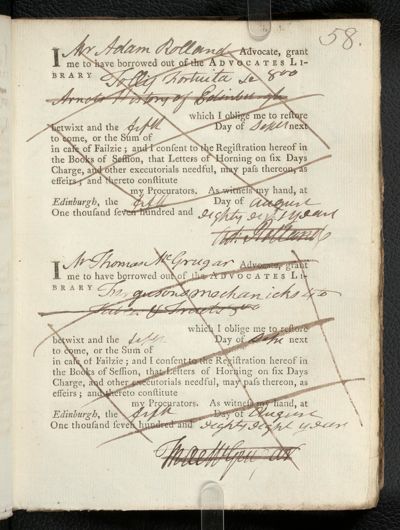 58.
I Mr Adam Rolland Advocate, grant
me to have borrowed out of the ADVOCATES LI-
BRARY Tollij Fortuita Se 8vo
Arnots History of Edinburgh
which I oblige me to reſtore
betwixt and the fifth Day of Septr next
to come, or the Sum of
in caſe of Failzie; and I conſent to the Regiſtration hereof in
the Books of Seſſion, that Letters of Horning on ſix Days
Charge, and other executorials needful, may paſs thereon, as
effeirs; and thereto conſtitute
my Procurators. As witneſs my hand, at
Edinburgh, the fifth Day of August
One thouſand ſeven hundred and eighty eight years
Ad: Rolland
I Mr Thomas McGrugar Advocate, grant
me to have borrowed out of the ADVOCATES LI-
BRARY Fergusons mechanicks 4to
8vo
which I oblige me to reſtore
betwixt and the fifth Day of Septr next
to come, or the Sum of
in caſe of Failzie; and I conſent to the Regiſtration hereof in
the Books of Seſſion, that Letters of Horning on ſix Days
Charge, and other executorials needful, may paſs thereon, as
effeirs; and thereto conſtitute
my Procurators. As witneſs my hand, at
Edinburgh, the fifth Day of August
One thouſand ſeven hundred and eighty eight years
Tho McGrugar